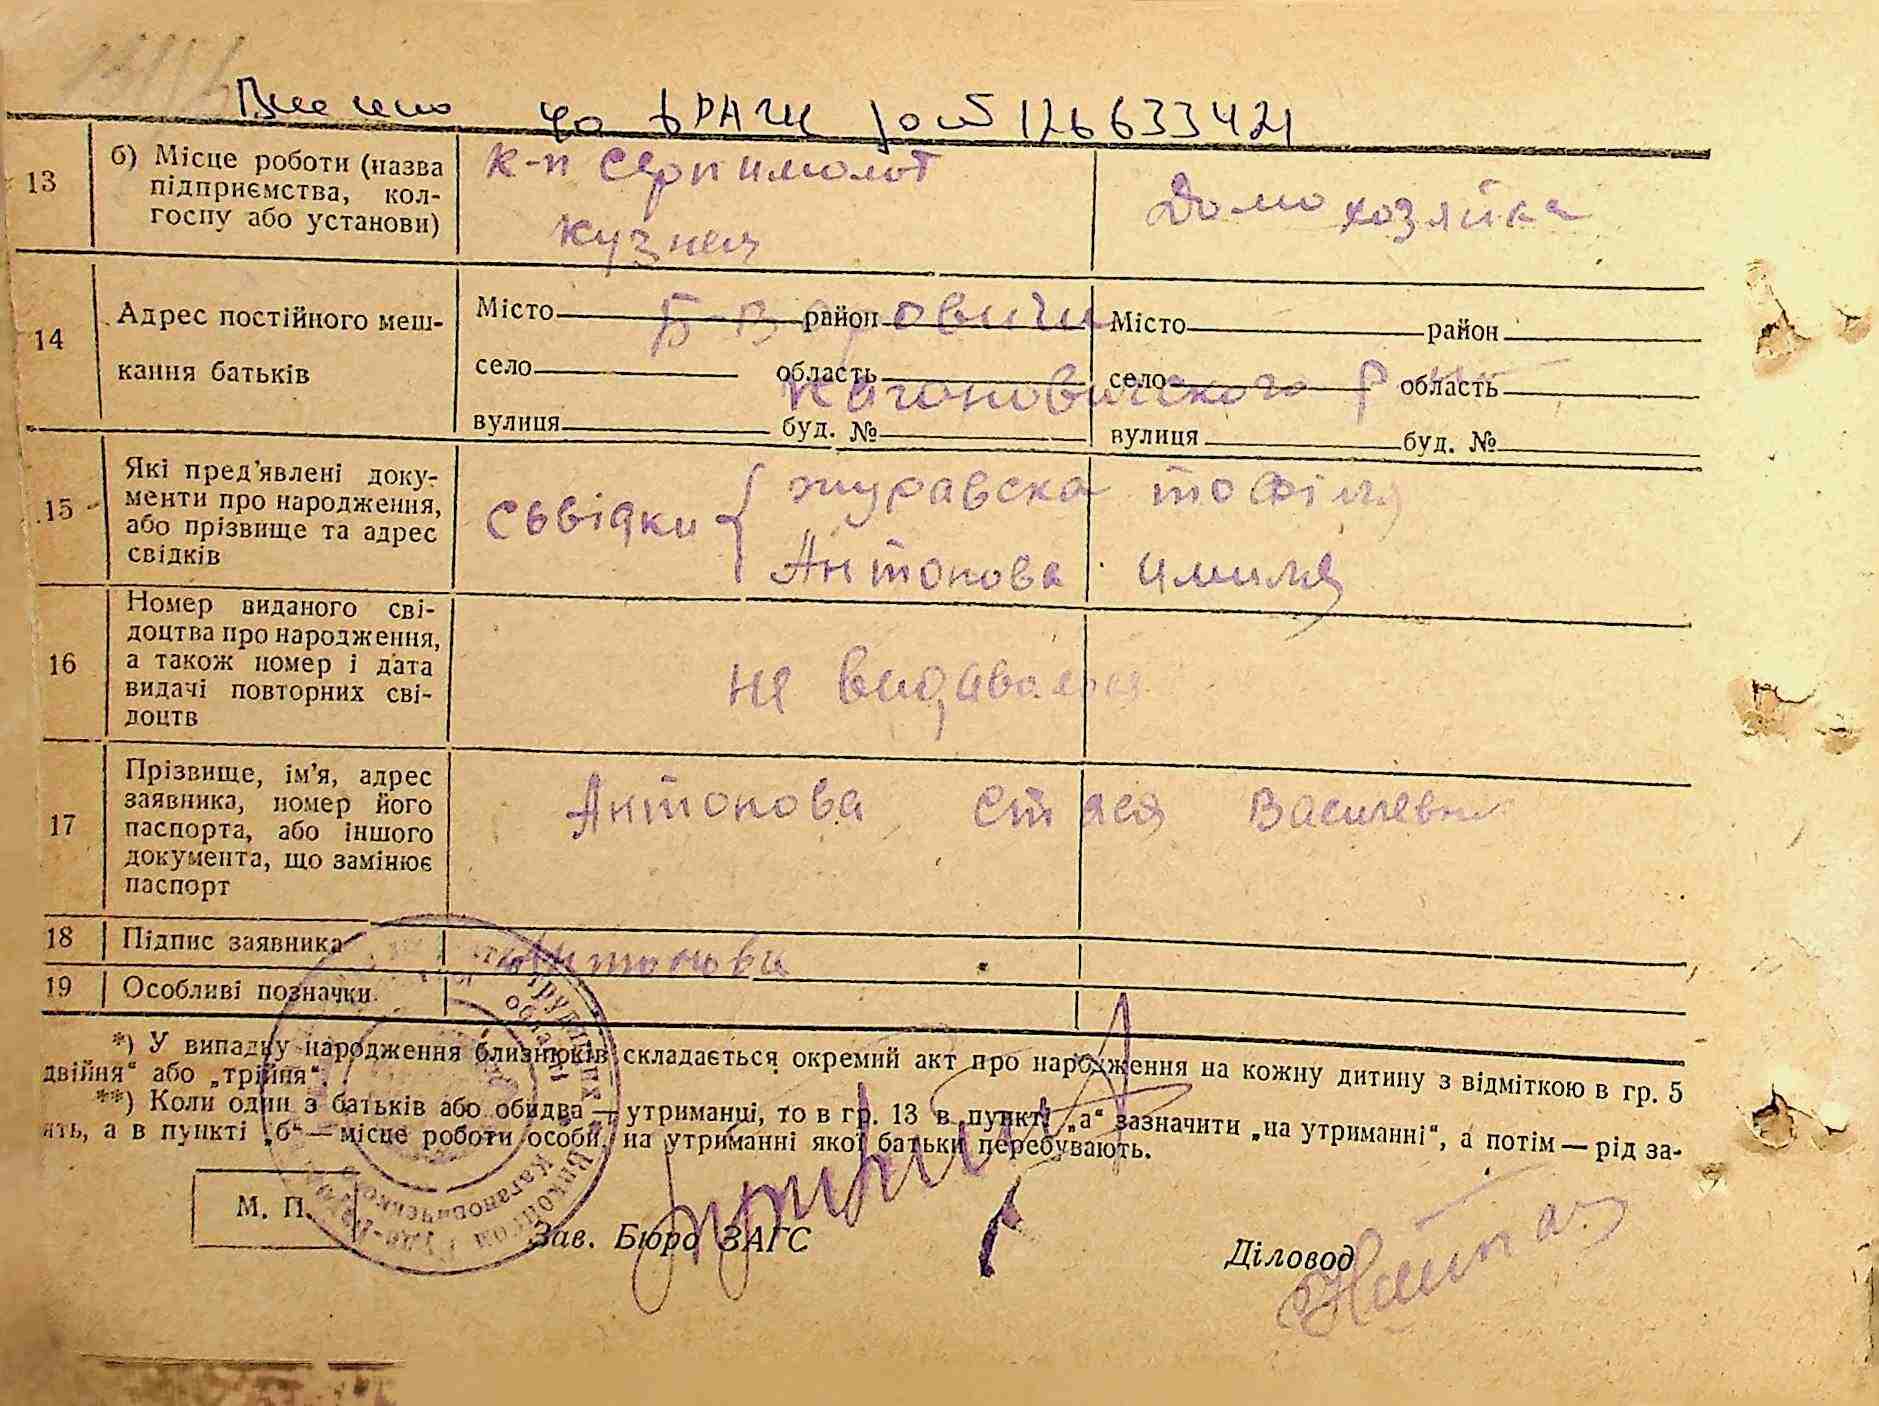 Внесено до ДРАЦС 126633421
13 б) Місце роботи (назва підприємства, колгоспу або установи)
к-п Серп и молот
кузнец
Домохозяйка
14 Адрес постійного мешкання батьків
Місто район Місто район
Б-В овичи
село область село область
Кагановичского р
вулиця буд. № вулиця буд. №
15 Які пред'явлені документи про народження, або прізвище та адрес свідків
Сьвідки { журавска тофіля
Антонова имиля
16 Номер виданого свідоцтва про народження, а також номер і дата видачі повторних свідоцтв
не видавалося
17 Прізвище, ім'я, адрес заявника, номер його паспорта, або іншого документа, що замінює паспорт
Антонова Стася Василевна
18 Підпис заявника Антонова
19 Особливі позначки
*) У випадку народження близнюків складається окремий акт про народження на кожну дитину з відміткою в гр. 5
двійня" або „трійня".
**) Коли один з батьків або обидва — утриманці, то в гр. 13 в пункті „а" зазначити „на утриманні", а потім — рід за-
ять, а в пункті „б" — місце роботи особи, на утриманні якої батьки перебувають.
М. П.
Зав. Бюро ЗАГС
Діловод